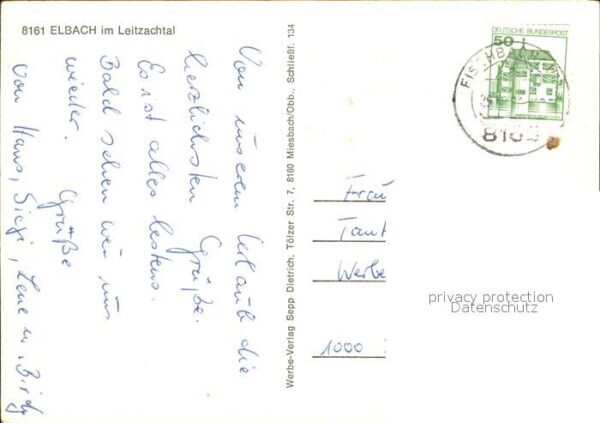 8161 ELBACH im Leitzachtal
Von unserem Urlaub die
herzlichsten Grüße.
Es ist alles bestens.
Bald sehen wir uns
wieder. Grüße
von Hans, Siegi, Lene u.
Werbe-Verlag Sepp Dietrich, Tölzer Str. 7, 8160 Miesbach/Obb. Schließf. 134
DEUTSCHE BUNDESPOST
50
FISCHBACHAU
816
Frau
Tant
Werbe
1000
privacy protection
Datenschutz